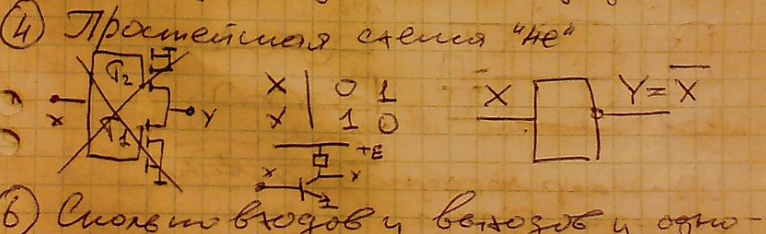 4 Простейшая схема "не"
T2
X 0 1
X Y=X̅
X T1 Y X 1 0
+E
x x
6 Сколько входов и выходов и одно-